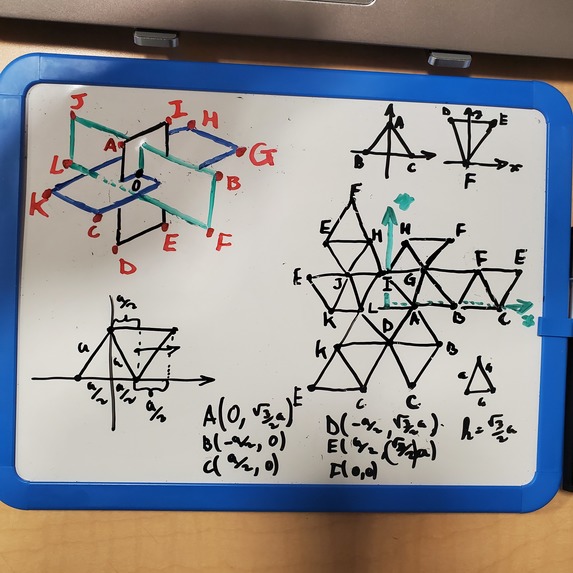 J
I
H
A
G
L
O
B
K
C
E
F
D
A
B
C
D
E
F
x
F
E
H
H
F
E
J
I
G
F
E
K
L
A
B
C
K
D
B
E
C
C
a/2
a
a
a/2
a/2
a/2
A(0, √3/2 a)
B(-a/2, 0)
C(a/2, 0)
D(-a/2, √3/2 a)
E(a/2, (√3/2)a)
F(0,0)
h = √3/2 a